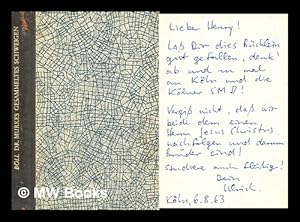 BÖLL DR. MURKES GESAMMELTES SCHWEIGEN
Lieber Henry!
Laß Dir dies Büchlein
gut gefallen, denk'
ab und zu mal
an Köln und die
Kölner SMD!
Vergiß nicht, daß wir
beide dem einen,
Herrn Jesus Christus
nachfolgen und darum
Brüder sind!
auch fleißig!
Dein
Ulrich.
Köln, 6.8.63
© MW Books